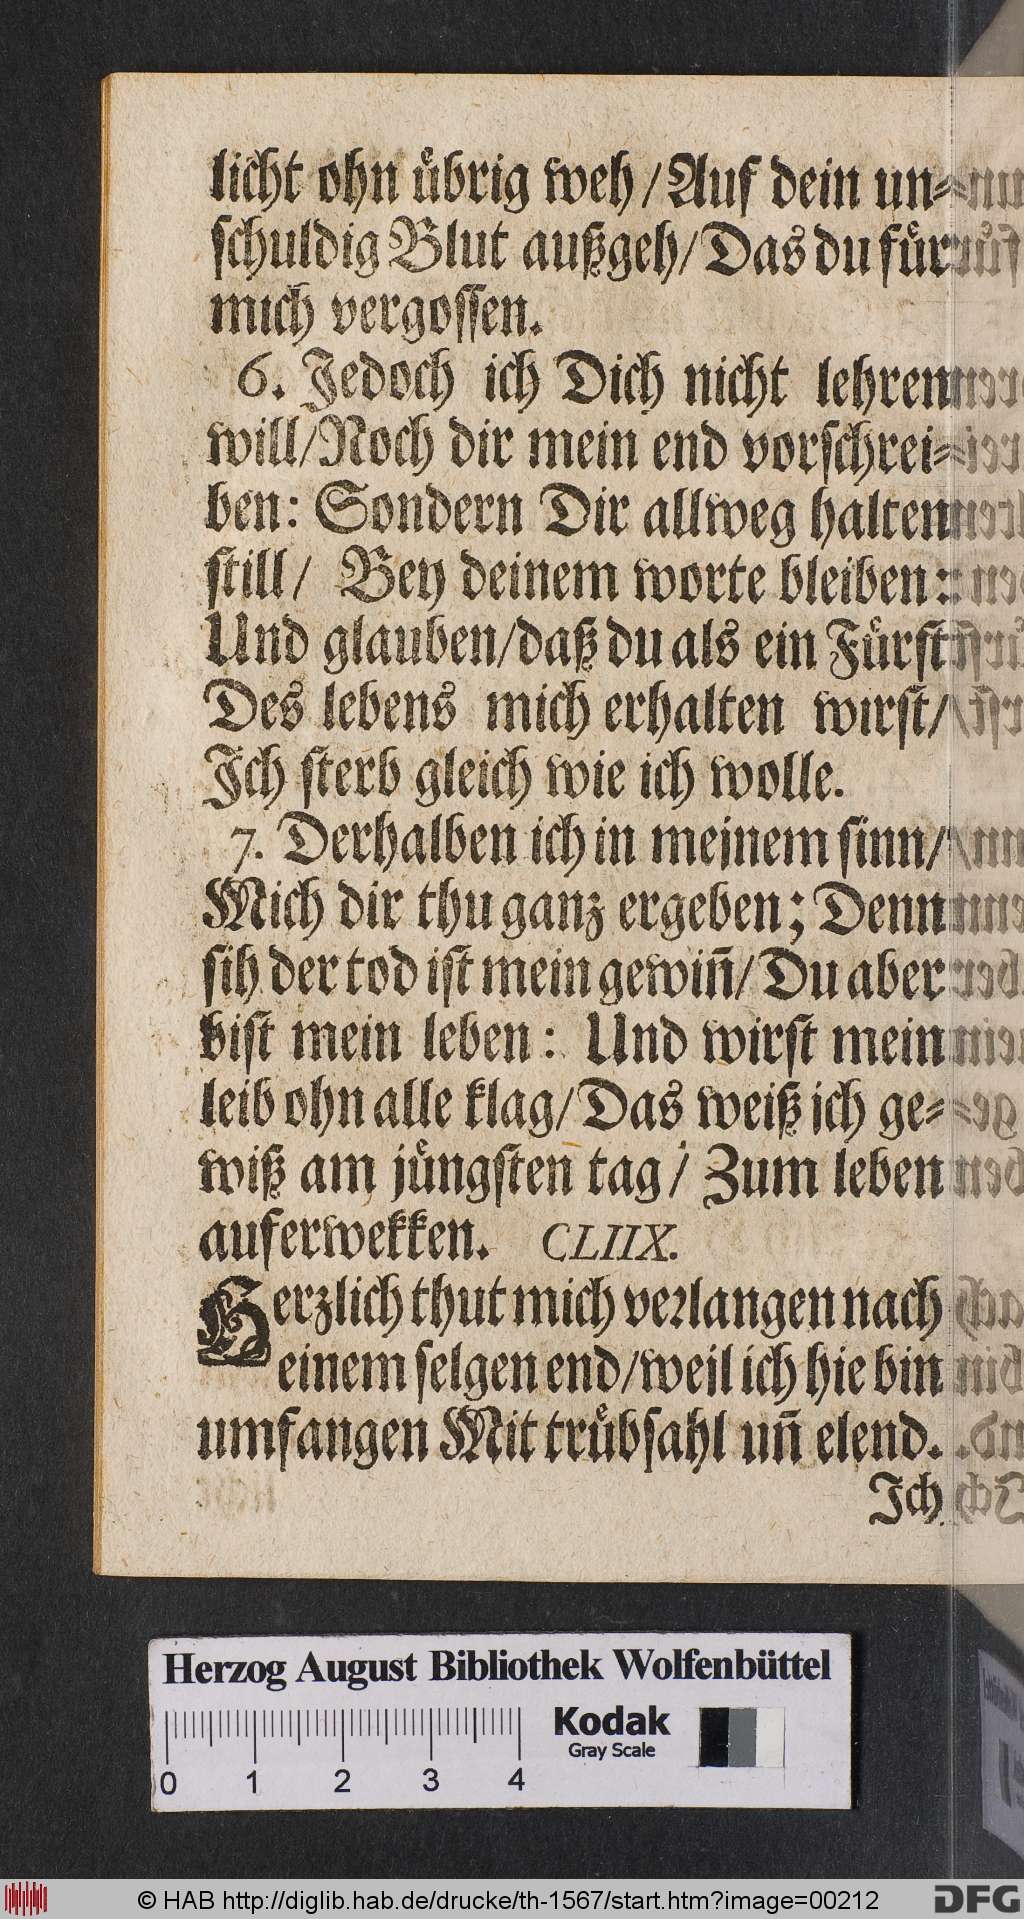 licht ohn übrig weh / Auf dein un-
schuldig Blut außgeh / Das du für
mich vergossen.
6. Jedoch ich Dich nicht lehren
will / Noch dir mein end vorschrei-
ben: Sondern Dir allweg halten
still / Bey deinem worte bleiben:
Und glauben / daß du als ein Fürst
Des lebens mich erhalten wirst /
Ich sterb gleich wie ich wolle.
7. Derhalben ich in meinem sinn /
Mich dir thu ganz ergeben; Denn
sih der tod ist mein gewiñ / Du aber
bist mein leben: Und wirst mein
leib ohn alle klag / Das weiß ich ge-
wiß am jüngsten tag / Zum leben
auferwekken. CLIIX.
Herzlich thut mich verlangen nach
einem selgen end / weil ich hie bin
umfangen Mit trübsahl uñ elend.
Ich
Herzog August Bibliothek Wolfenbüttel
Kodak
Gray Scale
0 1 2 3 4
© HAB http://diglib.hab.de/drucke/th-1567/start.htm?image=00212
DFG